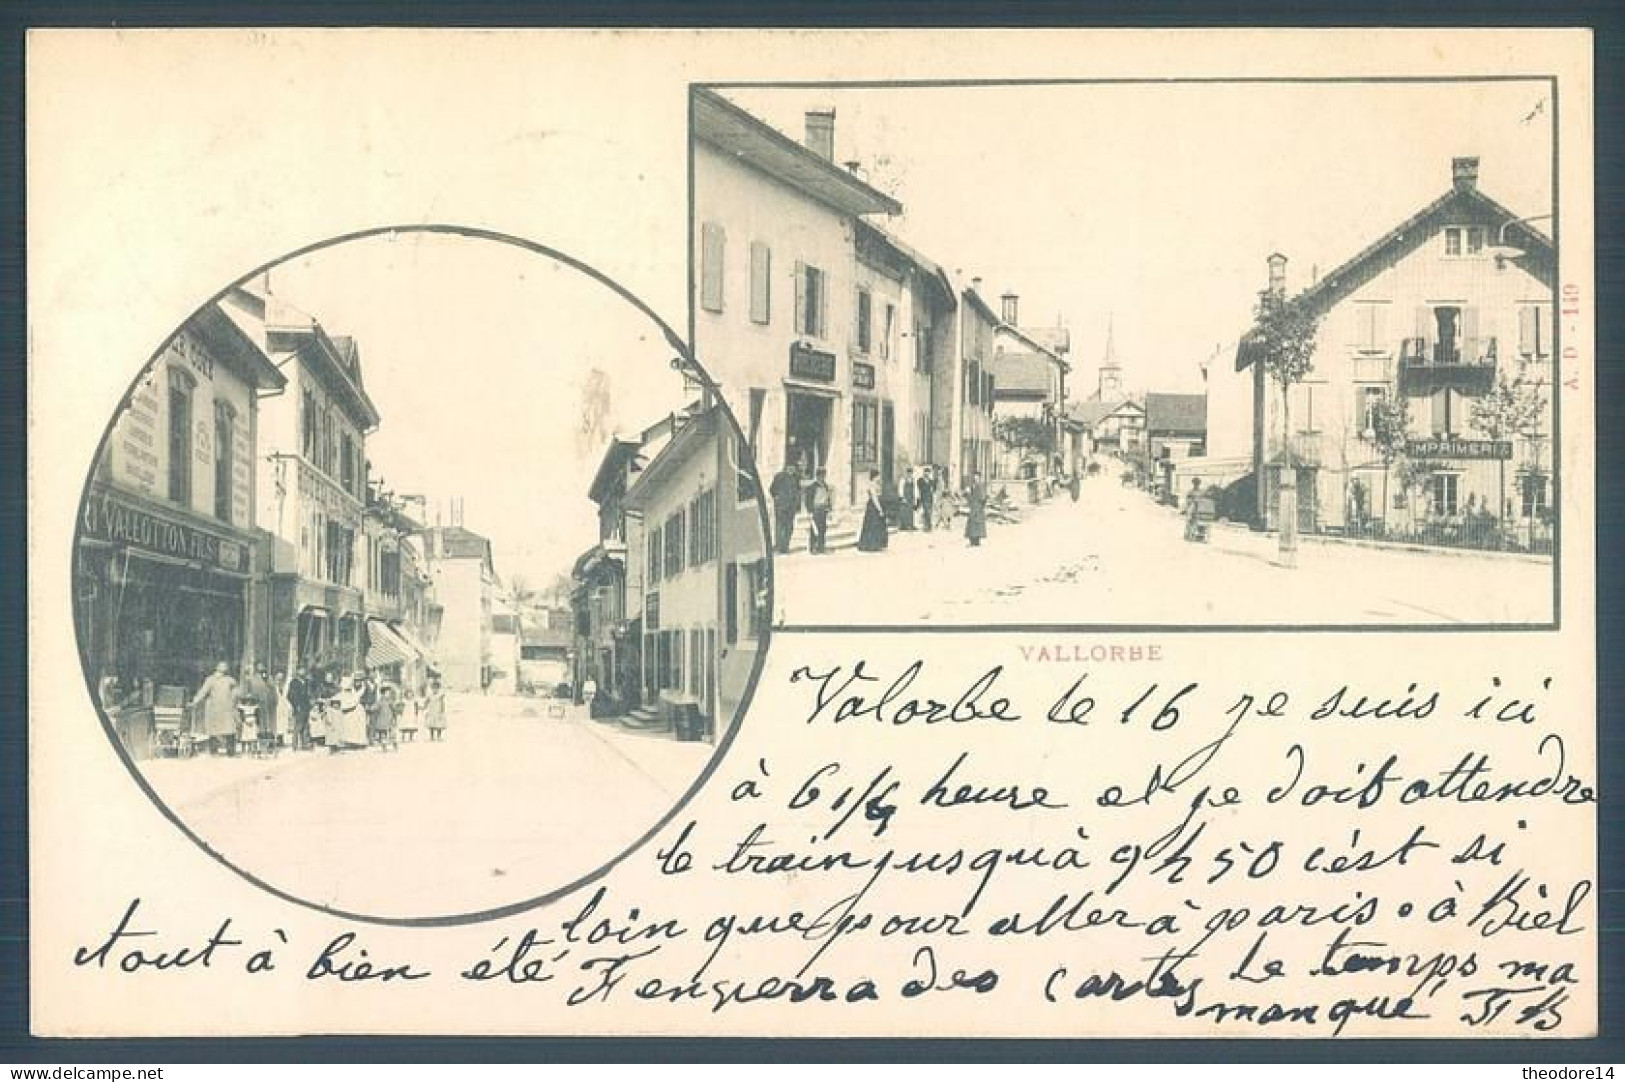 VALLOTTON FILS
IMPRIMERIE
A. D - 149
VALLORBE
Valorbe le 16 je suis ici
à 6 1/4 heure et je doit attendre
le train jusqu'à 9 h 50 c'ést si
loin que pour aller à paris. à Biel
tout à bien été J'engverra des cartes le temps ma
manqué
theodore14